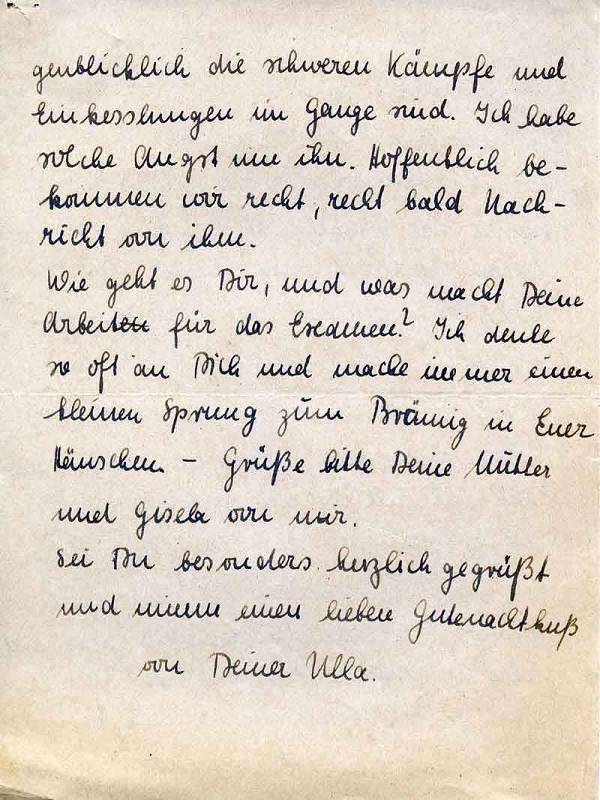 genblicklich die schweren Kämpfe und
Einkesslungen im Gange sind. Ich habe
solche Angst um ihn. Hoffentlich be-
kommen wir recht, recht bald Nach-
richt von ihm.
Wie geht es Dir, und was macht Deine
Arbeiten für das Examen? Ich denke
so oft an Dich und mache immer einen
kleinen Sprung zum Bräunig in Euer
Häuschen. – Grüße bitte Deine Mutter
und Gisela von mir.
Sei Du besonders herzlich gegrüßt
und nimm einen lieben Gutenachtkuß
von Deiner Ulla.